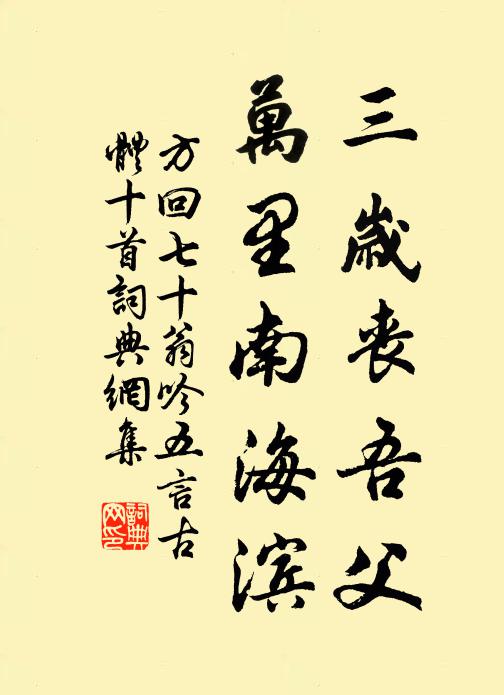 三歲喪吾父
萬里南海滨
方回七十翁吟五言古
體十首詞典網集
詞典
网印